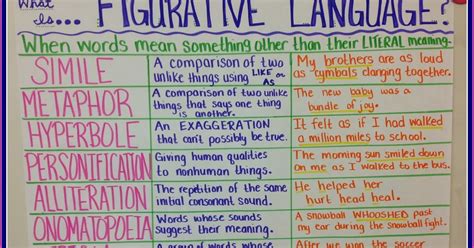 What
Is... FIGURATIVE LANGUAGE?
When words mean something other than their LITERAL meaning.
SIMILE
A comparison of two
unlike things using LIKE or
AS
My brothers are as loud
as cymbals clanging together.
METAPHOR
A comparison of two unlike
things that says one thing
is another.
The new baby was a
bundle of joy.
HYPERBOLE
An EXAGGERATION
that can't possibly be true.
It felt as if I had walked
a million miles to school.
PERSONIFICATION
Giving human qualities
to nonhuman things.
The morning sun smiled down
on me as I walked to the bus.
ALLITERATION
The repetition of the same
initial consonant sound.
He helped her
hurt head heal.
ONOMATOPOEIA
Words whose sounds
suggest their meaning.
A snowball WHOOSHED past
my ear during the snowball fight.
A group of words whose